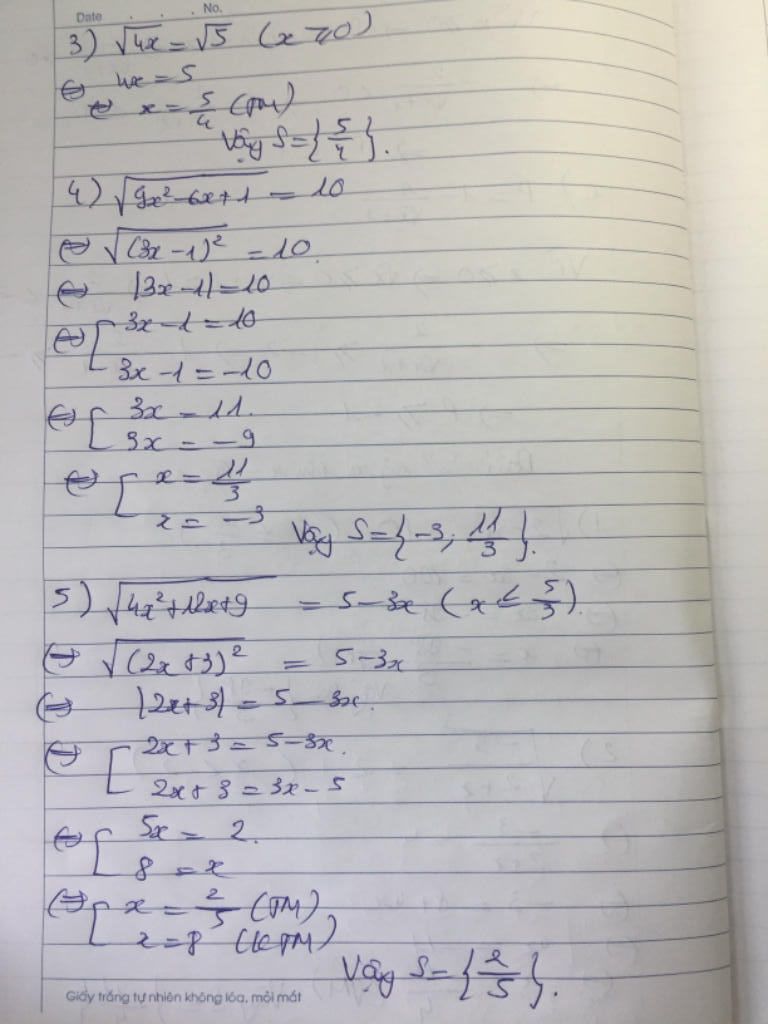 Date . . . No.
3) √4x = √5 (x ⩾ 0)
⇔ 4x = 5
⇔ x = 5/4 (TM)
Vậy S = {5/4}.
4) √(9x² - 6x + 1) = 10
⇔ √((3x - 1)²) = 10.
⇔ |3x - 1| = 10
⇔ [ 3x - 1 = 10
3x - 1 = -10
⇔ [ 3x = 11.
3x = -9
⇔ [ x = 11/3
x = -3 Vậy S = {-3; 11/3}.
5) √(4x² + 12x + 9) = 5 - 3x (x ≤ 5/3).
⇔ √((2x + 3)²) = 5 - 3x
⇔ |2x + 3| = 5 - 3x.
⇔ [ 2x + 3 = 5 - 3x.
2x + 3 = 3x - 5
⇔ [ 5x = 2.
8 = x
⇔ [ x = 2/5 (TM)
x = 8 (KTM)
Vậy S = {2/5}.
Giấy trắng tự nhiên không lóa, mỏi mắt